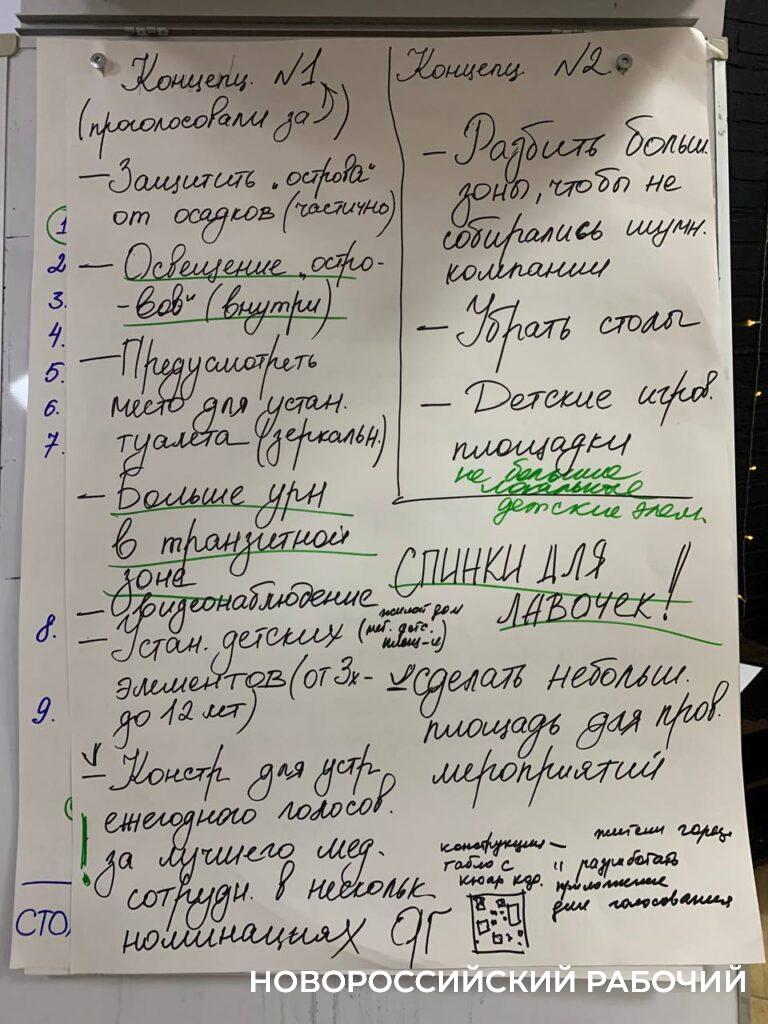 Концепц. N1
(проголосовали за)
— Защитить „острова"
от осадков (частично)
— Освещение „остро-
-вов" (внутри)
— Предусмотреть
место для устан.
туалета (зеркальн.)
— Больше урн
в транзитной
зоне
— Видеонаблюдение
— Устан. детских (жилой дом
нет детс.
площ-и)
элементов (от 3х-
до 12 лет)
— Констр для устр
ежегодного голосов.
за лучшего мед.
сотрудн. в нескольк
номинациях
Концепц N2.
— Разбить больш.
зоны, чтобы не
собирались шумн.
компании
— Убрать столы
— Детские игров.
площадки
не большие
локальные
детские элем.
СПИНКИ ДЛЯ
ЛАВОЧЕК!
— сделать небольш.
площадь для пров.
мероприятий
конструкция — жители город.
табло с " разработать
кюар код. приложение
для голосования
1
2
3.
4.
5.
6.
7.
8.
9.
СТО
НОВОРОССИЙСКИЙ РАБОЧИЙ